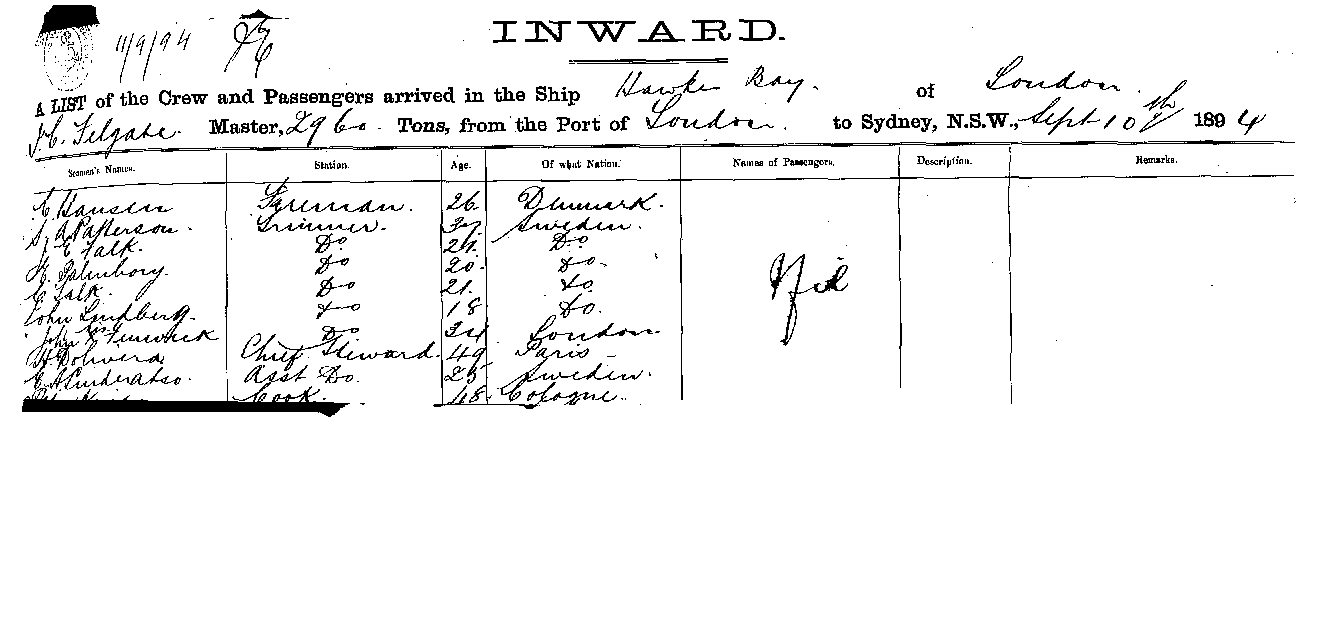 11/9/94
INWARD.
A LIST of the Crew and Passengers arrived in the Ship Hawkes Bay. of London.
J.C. Felgate. Master, 2960. Tons, from the Port of London. to Sydney, N.S.W., Sept 10th 1894
Seamen's Names. Station. Age. Of what Nation. Names of Passengers. Description. Remarks.
C Hansen Fireman. 26. Denmark.
Patterson. Trimmer. Sweden.
E Falk. Do Do
Do 20. Do
C Falk. Do 21. Do
Nil
John Lindberg. Do 18 Do.
John Fenwick Do 34 London
Chief Steward. 49 Paris
Asst Do. 25 Sweden.
Cook. 48. Cologne.